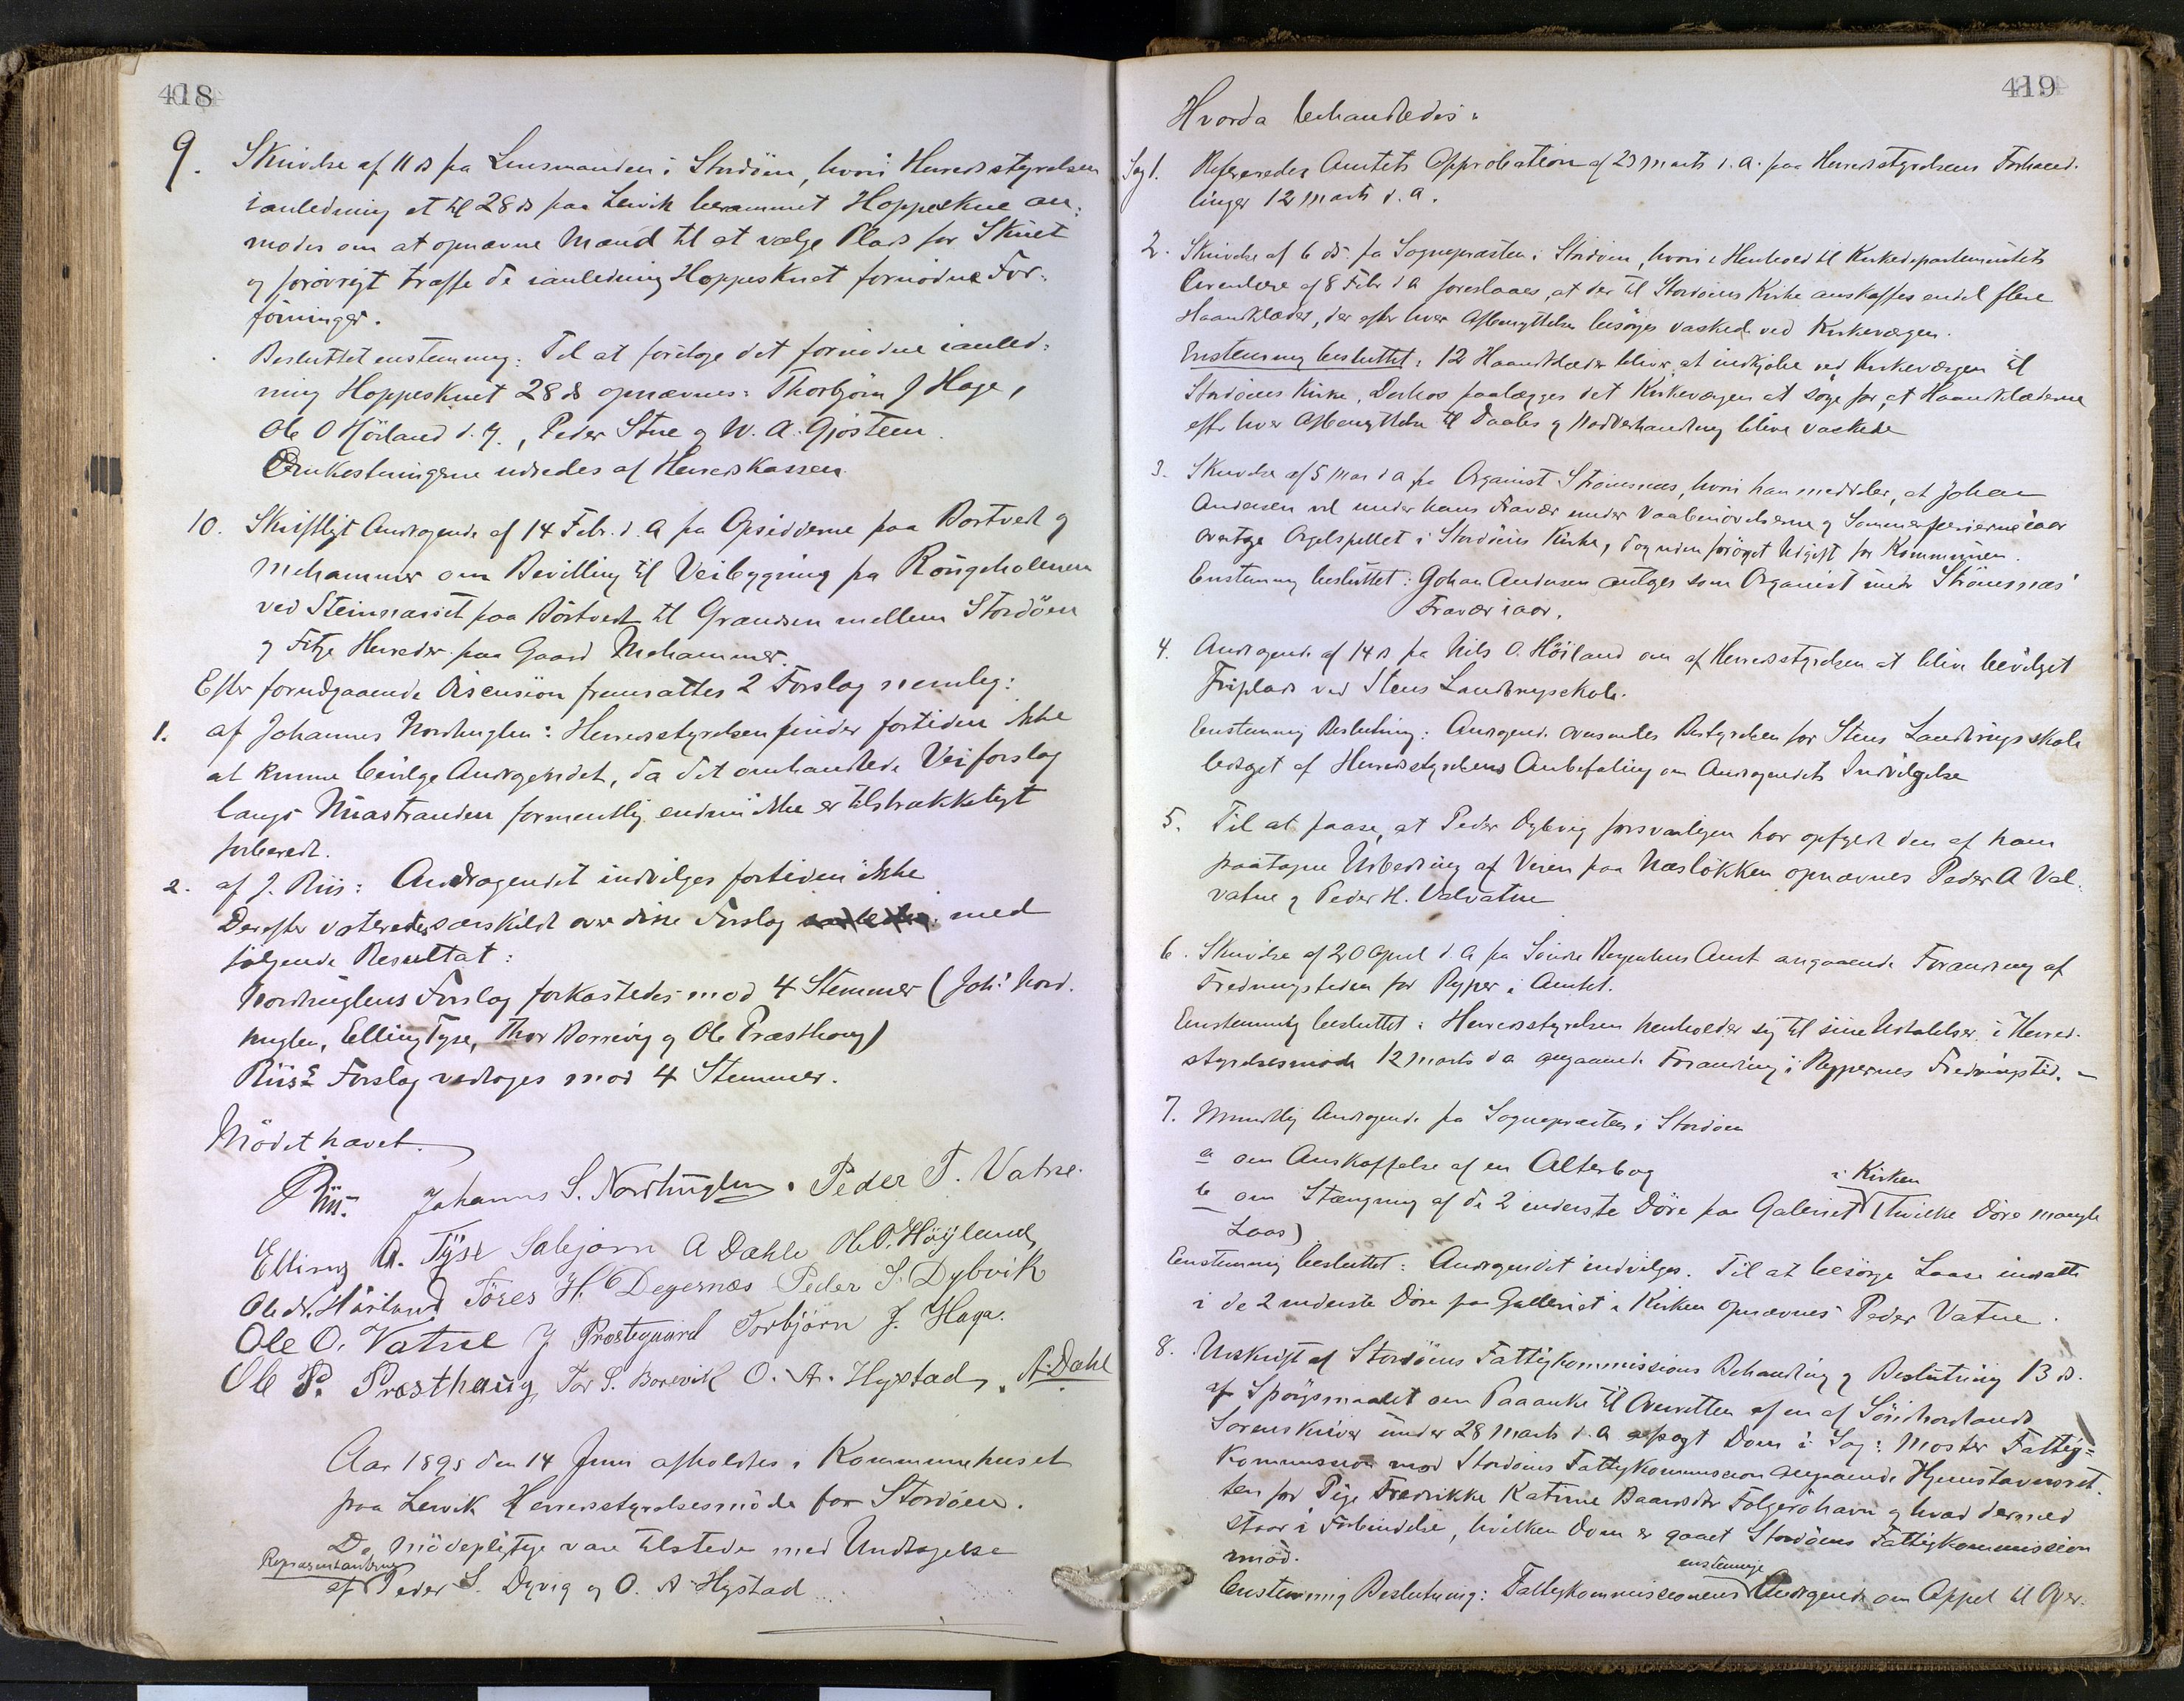 418
9. Skrivelse af 11 ds fra Lensmanden i Stordøen, hvori Herredsstyrelsen
ianledning et til 28 ds paa Lervik berammet Hoppeskue an-
modes om at opnævne Mænd til at vælge Plads for Skuet
og forøvrigt træffe de ianledning Hoppeskuet fornødne For-
føininger.
Besluttet enstemmig: Til at foretage det fornødne ianled-
ning Hoppeskuet 28 ds opnævnes: Thorbjørn J Hage,
Ole O Høiland d. y., Peder Stue og W. A. Gjøsteen.
Omkostningerne udredes af Herredskassen.
10. Skriftligt Andragende af 14 Febr. d. A fra Opsidderne paa Børtvedt og
Mehammer om Bevilling til Veibygning fra Rongeholmen
ved Steinnaset paa Børtvedt til Grændsen mellem Stordøen
og Fitje Herreder paa Gaard Mehammer.
Efter forudgaaende Discusion fremsattes 2 Forslag nemlig:
1. af Johannes Nordhuglen: Herredsstyrelsen finder fortiden ikke
at kunne bevilge Andragendet, da det omhandlede Veiforslag
langs stranden formentlig endnu ikke er tilstrækkeligt
forberedt.
2. af J. Riis: Andragendet indvilges fortiden ikke
Derefter voteredes særskildt over disse Forslag med
følgende Resultat:
Nordhuglens Forslag forkastedes mod 4 Stemmer (Johs Nord-
huglen, Elling Tyse, Thor Borrevig og Ole Præsthoug)
Riis's Forslag vedtoges mod 4 Stemmer.
Mødet hævet.
Riis. Johannes S. Nordhuglen. Peder T. Vatne.
Elling A. Tyse Salejørn A Dahle Ole O. Høyland,
Ole N. Høiland Töres H. Degernæs Peder S. Dybvik
Ole O. Vatne J Prestegaard Torbjørn J. Haga.
Ole P. Præsthaug, Tor S. Borevik O. A. Hystad, A. Dahl
Aar 1895 den 14 Juni afholdtes i Kommunehuset
paa Lervik Herredsstyrelsesmøde for Stordøen.
De Mødepligtige vare tilstede med Undtagelse
Repræsentanterne
af Peder S. Dyvig og O. A Hystad
419
Hvorda behandledes:
Sag 1. Refereredes Amtets Approbation af 23 Marts d. A. paa Herredsstyrelsens Forhand-
linger 12 Marts d. A.
2. Skrivelse af 6 ds. fra Sognepræsten i Stordøen, hvori i Henhold til Kirkedepartementets
Circulære af 8 Febr d A foreslaaes, at der til Stordøens Kirke anskaffes endel flere
Haandklæder, der efter hver Afbenyttelse besørges vasked ved Kirkeværgen.
Enstemmig besluttet: 12 Haandklæder bliver at indkjøbe ved Kirkeværgen til
Stordøens Kirke, Derhos paalægges det Kirkeværgen at sørge for, at Haandklæderne
efter hver Afbenyttelse til Daabs og Nadverhandling blive vaskede
3. Skrivelse af 5 Mai d A fra Organist Strømsnæs, hvori han meddeler, at Johan
Andersen vil under hans Fravær under Vaabenøvelserne og Sommerferierne iaar
overtage Orgelspillet i Stordøens Kirke, dog uden forøget Udgift for Kommunen.
Enstemmig besluttet: Johan Andersen antages som Organist under Strømsnæs'
Fravær iaar.
4. Andragende af 14 ds fra Nils O. Høiland om af Herredsstyrelsen at blive bevilget
Friplads ved Stens Landbrugsskole.
Enstemmig Beslutning: Andragende oversendes Bestyrelsen for Stens Landbrugsskole
ledsaget af Herredsstyrelsens Anbefaling om Andragendets Indvilgelse
5. Til at paase, at Peder Dybvig forsvarligen har opfyldt den af ham
paatagne Udbedring af Veien paa Næsløkken opnævnes Peder A Val-
vatne og Peder H. Valvatne
6. Skrivelse af 20 April d. A fra Søndre Bergenhus Amt angaaende Forandring af
Fredningstiden for Ryper i Amtet.
Enstemmig besluttet: Herredsstyrelsen henholder sig til sine Udtalelser i Herred-
styrelsesmøde 12 Marts d a angaaende Forandring i Rypernes Fredningstid. –
7. Mundtlig Andragende fra Sognepræsten i Stordøen
a om Anskaffelse af en Alterbog
i Kirken
b om Stængning af de 2 inderste Døre paa Galleriet (hvilke Døre mangle
Laas)
Enstemmig besluttet: Andragendet indvilges. Til at besørge Laase indsatte
i de 2 inderste Døre paa Galleriet i Kirken opnævnes Peder Vatne.
8. Udskrift af Stordøens Fattigkommissions Behandling og Beslutning 13 ds.
af Spørgsmaalet om Paaanke til Overretten af en af Søndhordlands
Sorenskriver under 28 Marts d. A afsagt Dom i Sag: Moster Fattig-
Kommission mod Stordøens Fattigkommission angaaende Hjemstavnsret-
ten for Pige Fredrikke Katrine Baardsdtr Folgerøhavn og hvad dermed
staar i Forbindelse, hvilken Dom er gaaet Stordøens Fattigkommission
imod.
enstemmige
Enstemmig Beslutning: Fattigkommissionens Andragende om Appel til Over-